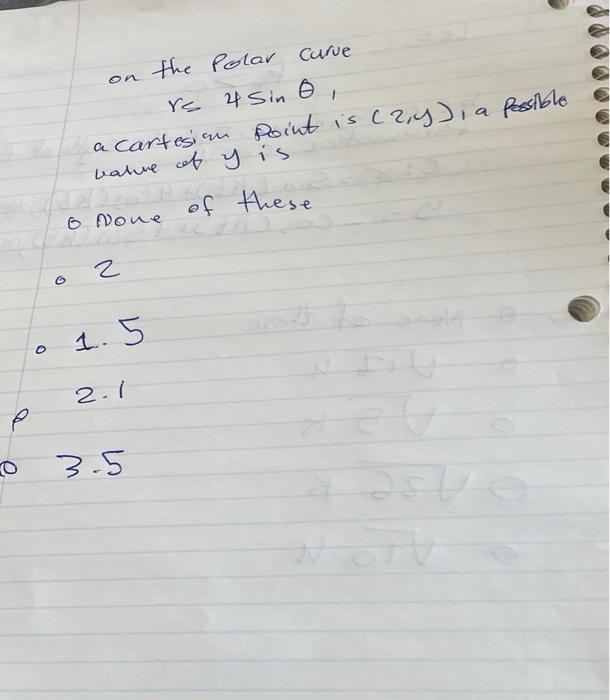 on the Polar curve
r= 4 Sin θ,
a cartesian Point is (2,y), a Possible
value of y is
o None of these
o 2
o 1.5
o 2.1
o 3.5